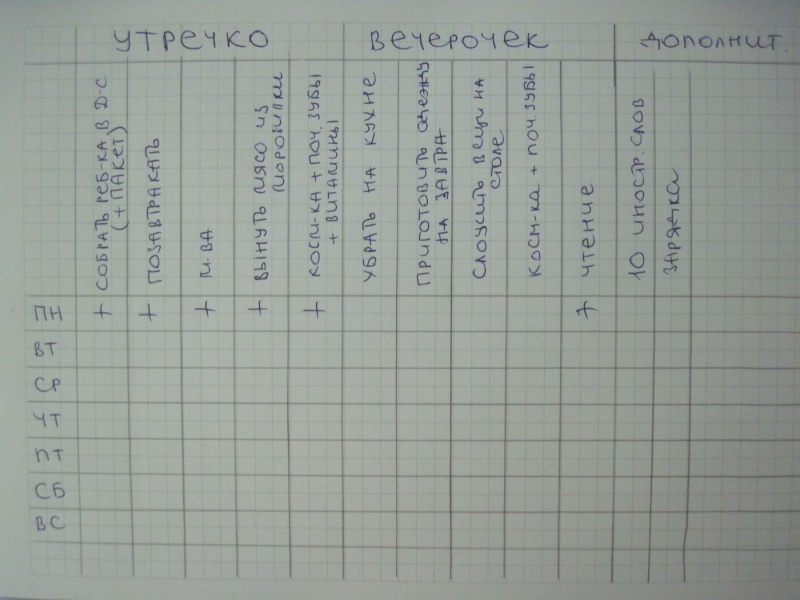 УТРЕЧКО ВЕЧЕРОЧЕК ДОПОЛНИТ.
СОБРАТЬ РЕБ-КА В Д-С
(+ ПАКЕТ)
ПОЗАВТРАКАТЬ
М-ВА
ВЫНУТЬ МЯСО ИЗ
МОРОЗИЛКИ
КОСМ-КА + ПОЧ. ЗУБЫ
+ ВИТАМИНЫ
УБРАТЬ НА КУХНЕ
ПРИГОТОВИТЬ ОДЕЖДУ
НА ЗАВТРА
СЛОЖИТЬ ВЕЩИ НА
СТОЛЕ
КОСМ-КА + ПОЧ. ЗУБЫ
ЧТЕНИЕ
10 ИНОСТР. СЛОВ
ЗАРЯДКА
ПН + + + + + +
ВТ
СР
ЧТ
ПТ
СБ
ВС